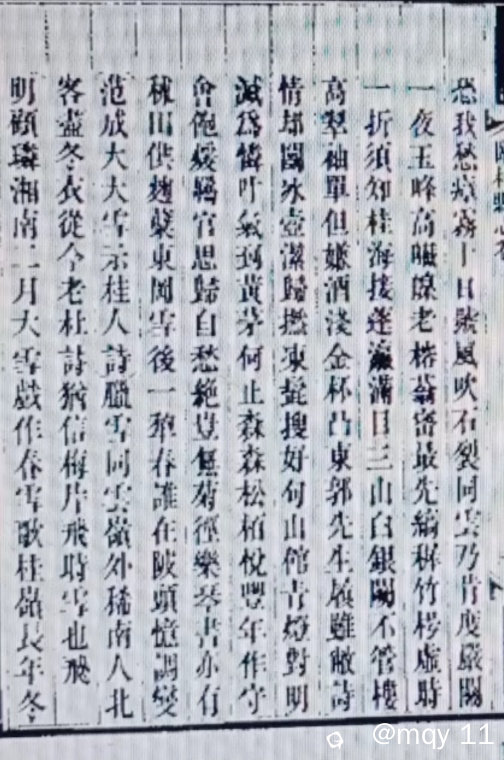 我愁瘴霧十日號風吹石裂同雲乃肯度嚴關
一夜玉峰高老榕蓊密最先縞穉竹樛虛時
一折須知桂海接蓬瀛滿目三山白銀闕不管樓
高翠袖單但嫌酒淺金杯凸東郭先生履雖敝詩
情却冰壺潔歸撫凍髭搜好句山館青燈對明
滅為憐叶氣到黃茅何止森森松柏悅豐年作守
會羈官思歸自愁絶豈無菊徑樂琴書亦有
秫田供麴糵東岡雪後一犂春誰在陂頭憶調燮
范成大大雪示桂人詩臘雪同雲嶺外稀南人北
客盡冬衣從今老杜詩猶信梅片飛時雪也飛
明顧璘湘南二月大雪戲作春雪歌桂嶺長年冬
@mqy 11